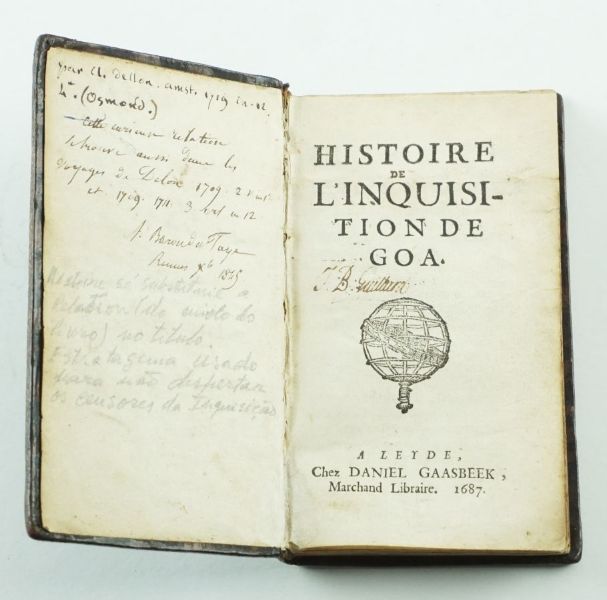 par C. Dellon. amst. 1719 in-12.
4ᵗ. (Osmond.)
Cette curieuse relation
se trouve aussi dans les
Voyages de Delon 1709. 2 in 12
et 1709. 1711. 3 vol in 12
Rennes 1845
Histoire só substitui a
Relation (do miolo do
livro) no título.
Estratagema usado
para não despertar
os censores da Inquisição
HISTOIRE
DE
L'INQUISI-
TION DE
GOA.
J. B.
A LEYDE,
Chez DANIEL GAASBEEK,
Marchand Libraire. 1687.